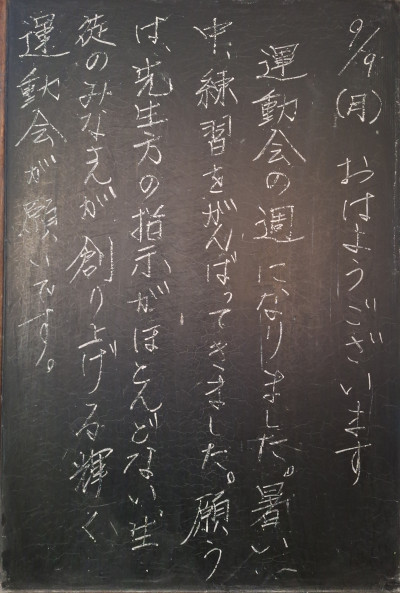 9/9(月) おはようございます
運動会の週になりました。暑い
中、練習をがんばってきました。願う
は、先生方の指示がほとんどない、生
徒のみなさんが創り上げる輝く
運動会が願いです。